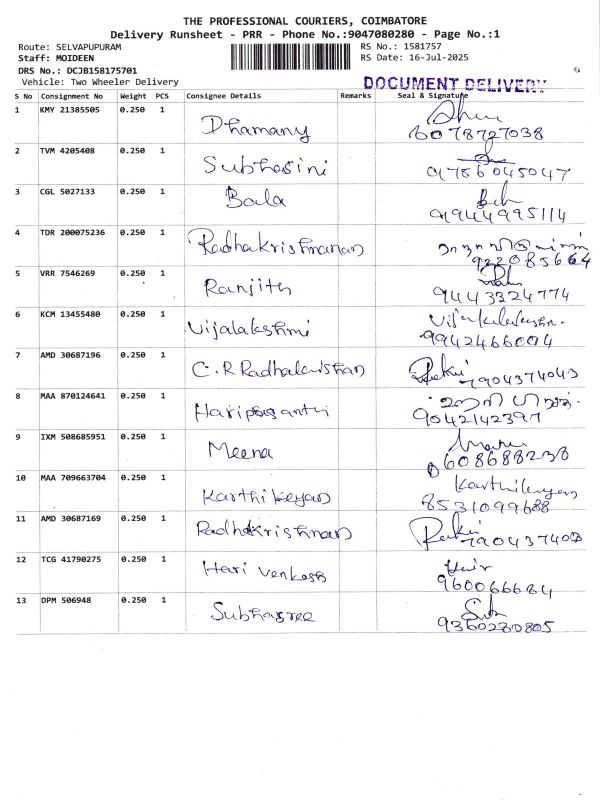 THE PROFESSIONAL COURIERS, COIMBATORE
Delivery Runsheet - PRR - Phone No.:9047080280 - Page No.:1
Route: SELVAPUPURAM
RS No.: 1581757
Staff: MOIDEEN
RS Date: 16-Jul-2025
DRS No.: DCJB158175701
Vehicle: Two Wheeler Delivery
DOCUMENT DELIVERY
S No Consignment No Weight PCS Consignee Details Remarks Seal & Signature
1 KMY 21385505 0.250 1 Dhamany
2 TVM 4205408 0.250 1 Subhasini
91786045047
3 CGL 5027133 0.250 1 Bala
919444995114
4 TDR 200075236 0.250 1 Radhakrishnanan
922085664
5 VRR 7546269 0.250 1 Ranjith
9443324774
6 KCM 13455480 0.250 1 Vijalakshmi
9942466004
7 AMD 30687196 0.250 1 C.R Radhakrishan
7904374043
8 MAA 870124641 0.250 1 Hariprasanth
9042142397
9 IXM 508685951 0.250 1 Meena
10 MAA 709663704 0.250 1 Karthikeyan Karthikeyan
8531099688
11 AMD 30687169 0.250 1 Radhakrishnan
12 TCG 41790275 0.250 1 Hari Venkash
960066684
13 DPM 506948 0.250 1 Subhasree
9360280805